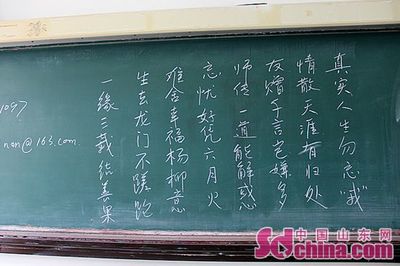 真实人生勿忘“我”
情散天涯有归处
友赠千言岂嫌多
师传一道能解惑
忘忧好凭六月火
难舍幸福杨柳意
生去龙门不蹉跎
一缘三载结善果
1097
nan@163.com
中国山东网
Sdchina.com